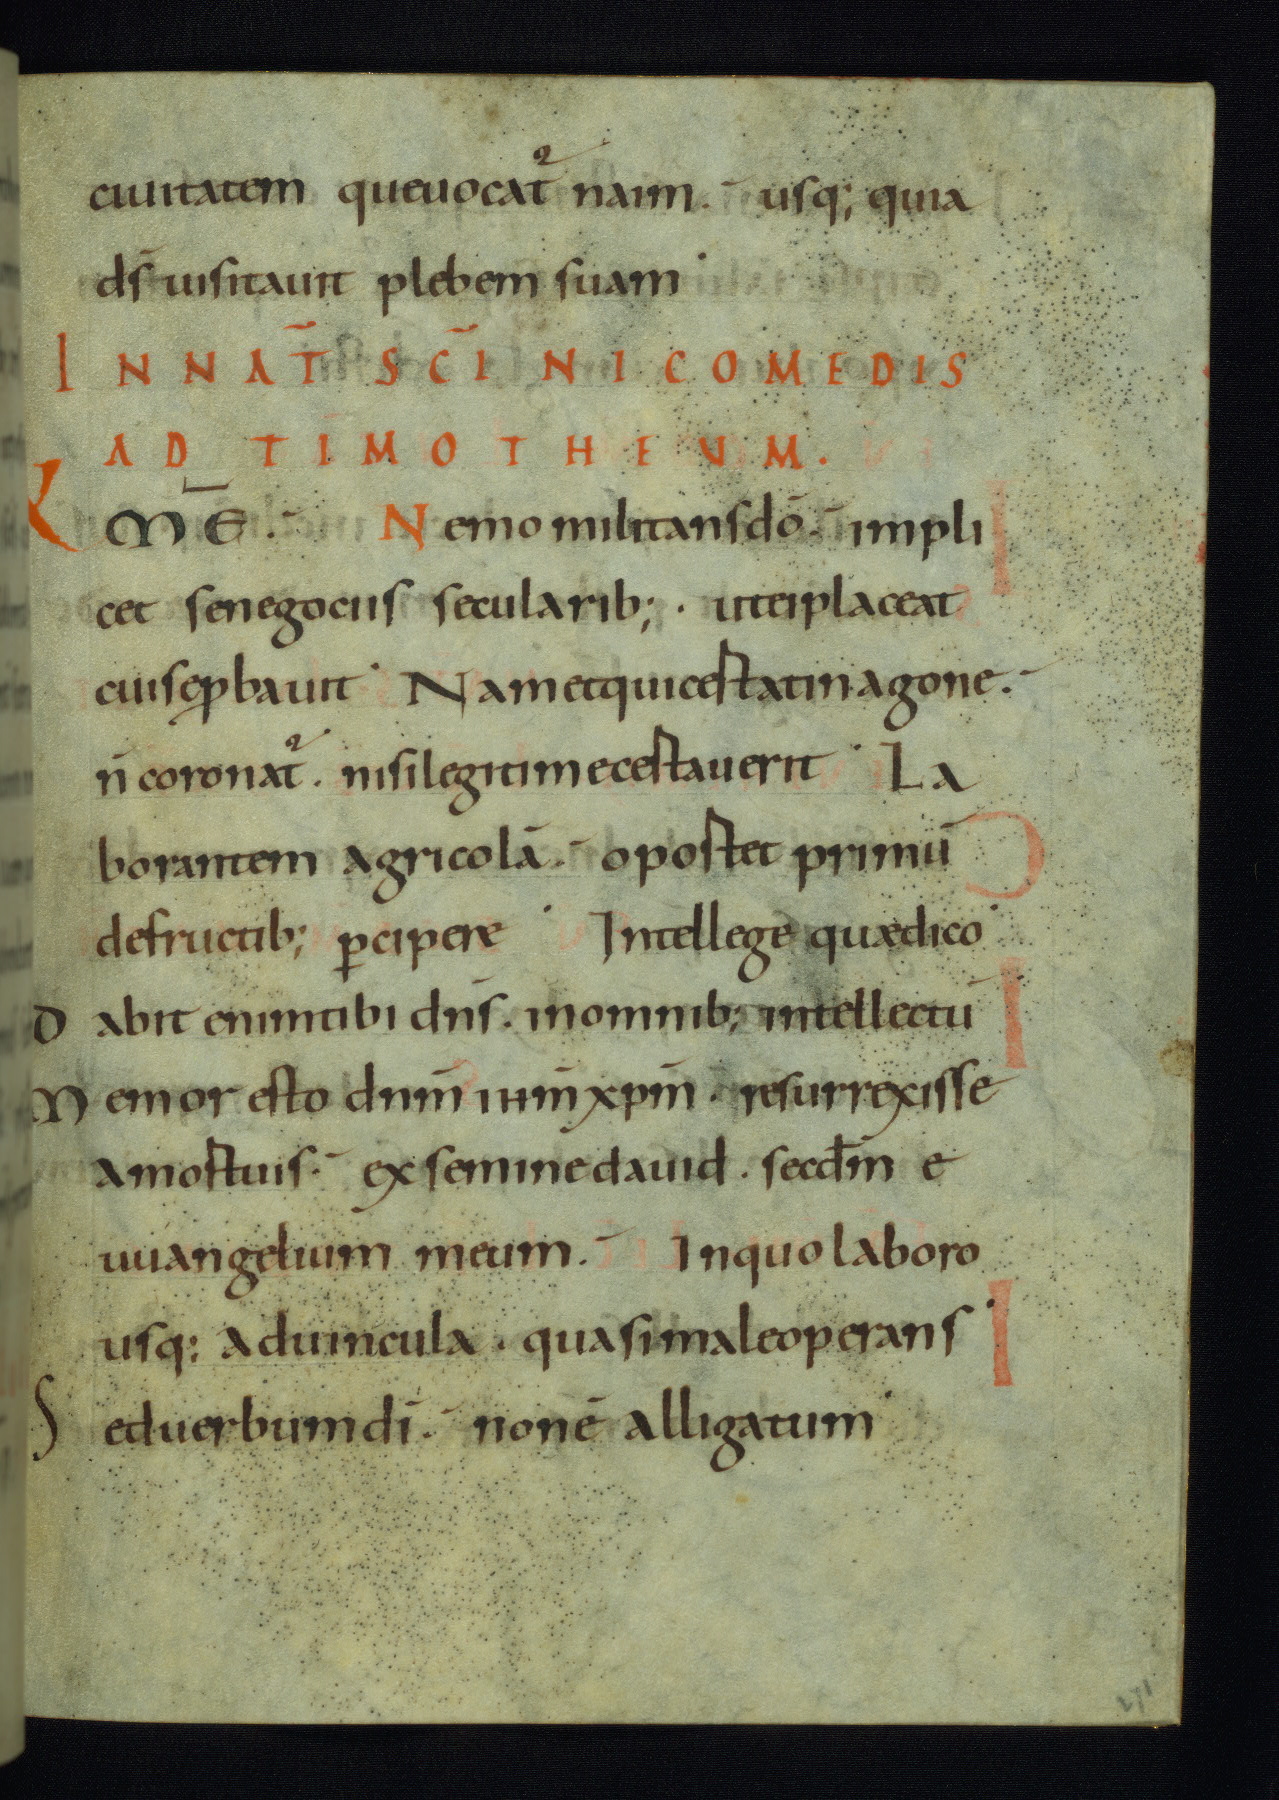 ciuitatem queuocat̄ naim. usq; quia
ds̄ uisitauit plebem suam
INNAT̄ SC̄I NICOMEDIS
AD TIMOTHEUM.
K M̄E. Nemo militansdō. impli
cet senegociis secularib;. uteiplaceat
cuiseꝓbauit Nametquicertatinagone.
n̄ coronat̄. nisilegitimecertauerit La
borantem agricolā. oportet primū
defructib; ꝑcipere Intellege quædico
Dabit enimtibi dn̄s. inomnib; intellectū
Memor esto dnm̄ ihm̄ xpm̄. resurrexisse
amortuis. ex semine dauid. secdm̄ e
uuangelium meum. Inquo laboro
usq; aduincula. quasimaleoperans
Seduerbumdī. nonē alligatum